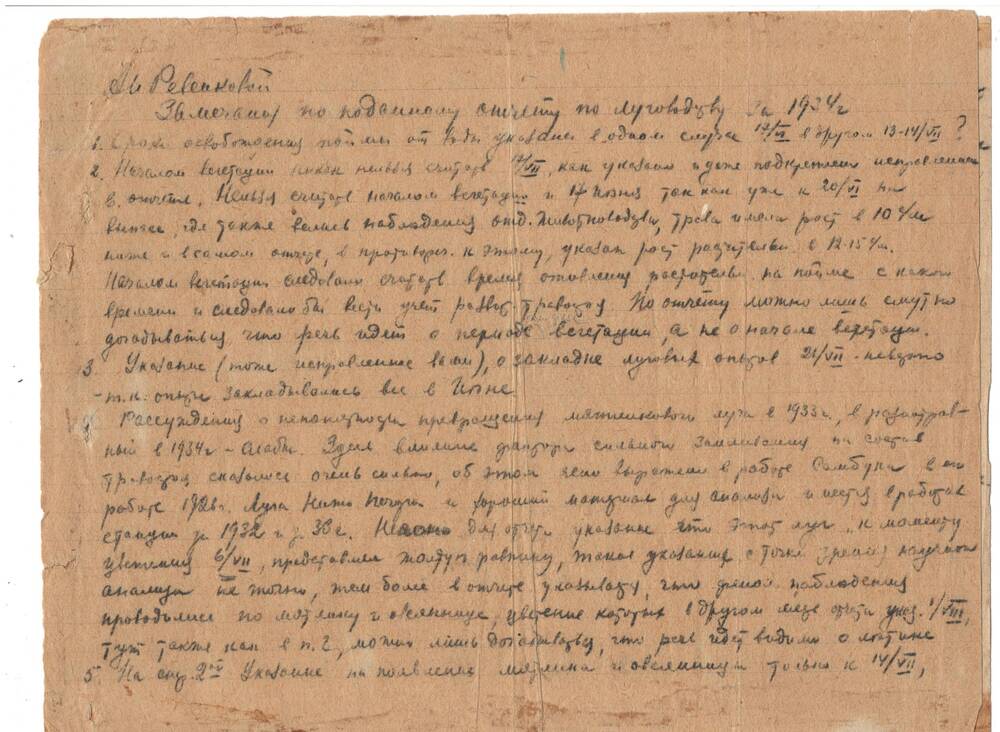 Ревенковой
Замечания по поданному отчету по луговодству за 1934 г
1. Сроки освобождения поймы от воды указаны в одном случае 17/VI в другом 13-14/VII ?
2. Началом вегетации никак нельзя считать 17/VII, как указано и даже подкреплено исправлением
в отчете. Нельзя считать началом вегетации и 17 июня так как уже к 20/VI на
выпасе, где также велись наблюдения отд. животноводства, трава имела рост в 10 см
ниже и в самом отчете, в противореч. к этому, указан рост раститель. в 12-15 см.
Началом вегетации следовало считать время оживления раститель. на пойме с какого
времени и следовало бы вести учет развит. травостоя. По отчету можно лишь смутно
догадываться что речь идет о периоде вегетации, а не о начале вегетации.
3. Указание (тоже исправленное вами), о закладке луговых опытов 21/VII - неверно
- т.к. опыты закладывались все в Июне
4. Рассуждения о непонятности превращения мятликового луга в 1933 г. в разнотрав-
ный в 1934 г - слабы. Здесь влияние фактора сильного заиливания на состав
травостоя сказалось очень сильно, об этом ясно выражено в работе Самбука в его
работе Луга и хороший материал для анализа имеется в работах
станции за 1932 и за 33 г. для отчета указание что этот луг "к моменту
цветения 6/VII, представлял желтую равнину, такое указание с точки зрения научного
анализа не точно, тем более в отчете указывается, что наблюдения
проводились по мятлику и овсянице, цветение которых в другом месте отчета указ. 1/VIII,
тут также как в п. 2, можно лишь догадываться, что речь идет видимо о лютике
5. На стр. 2ой Указание на появление мятлика и овсяницы только к 14/VII,